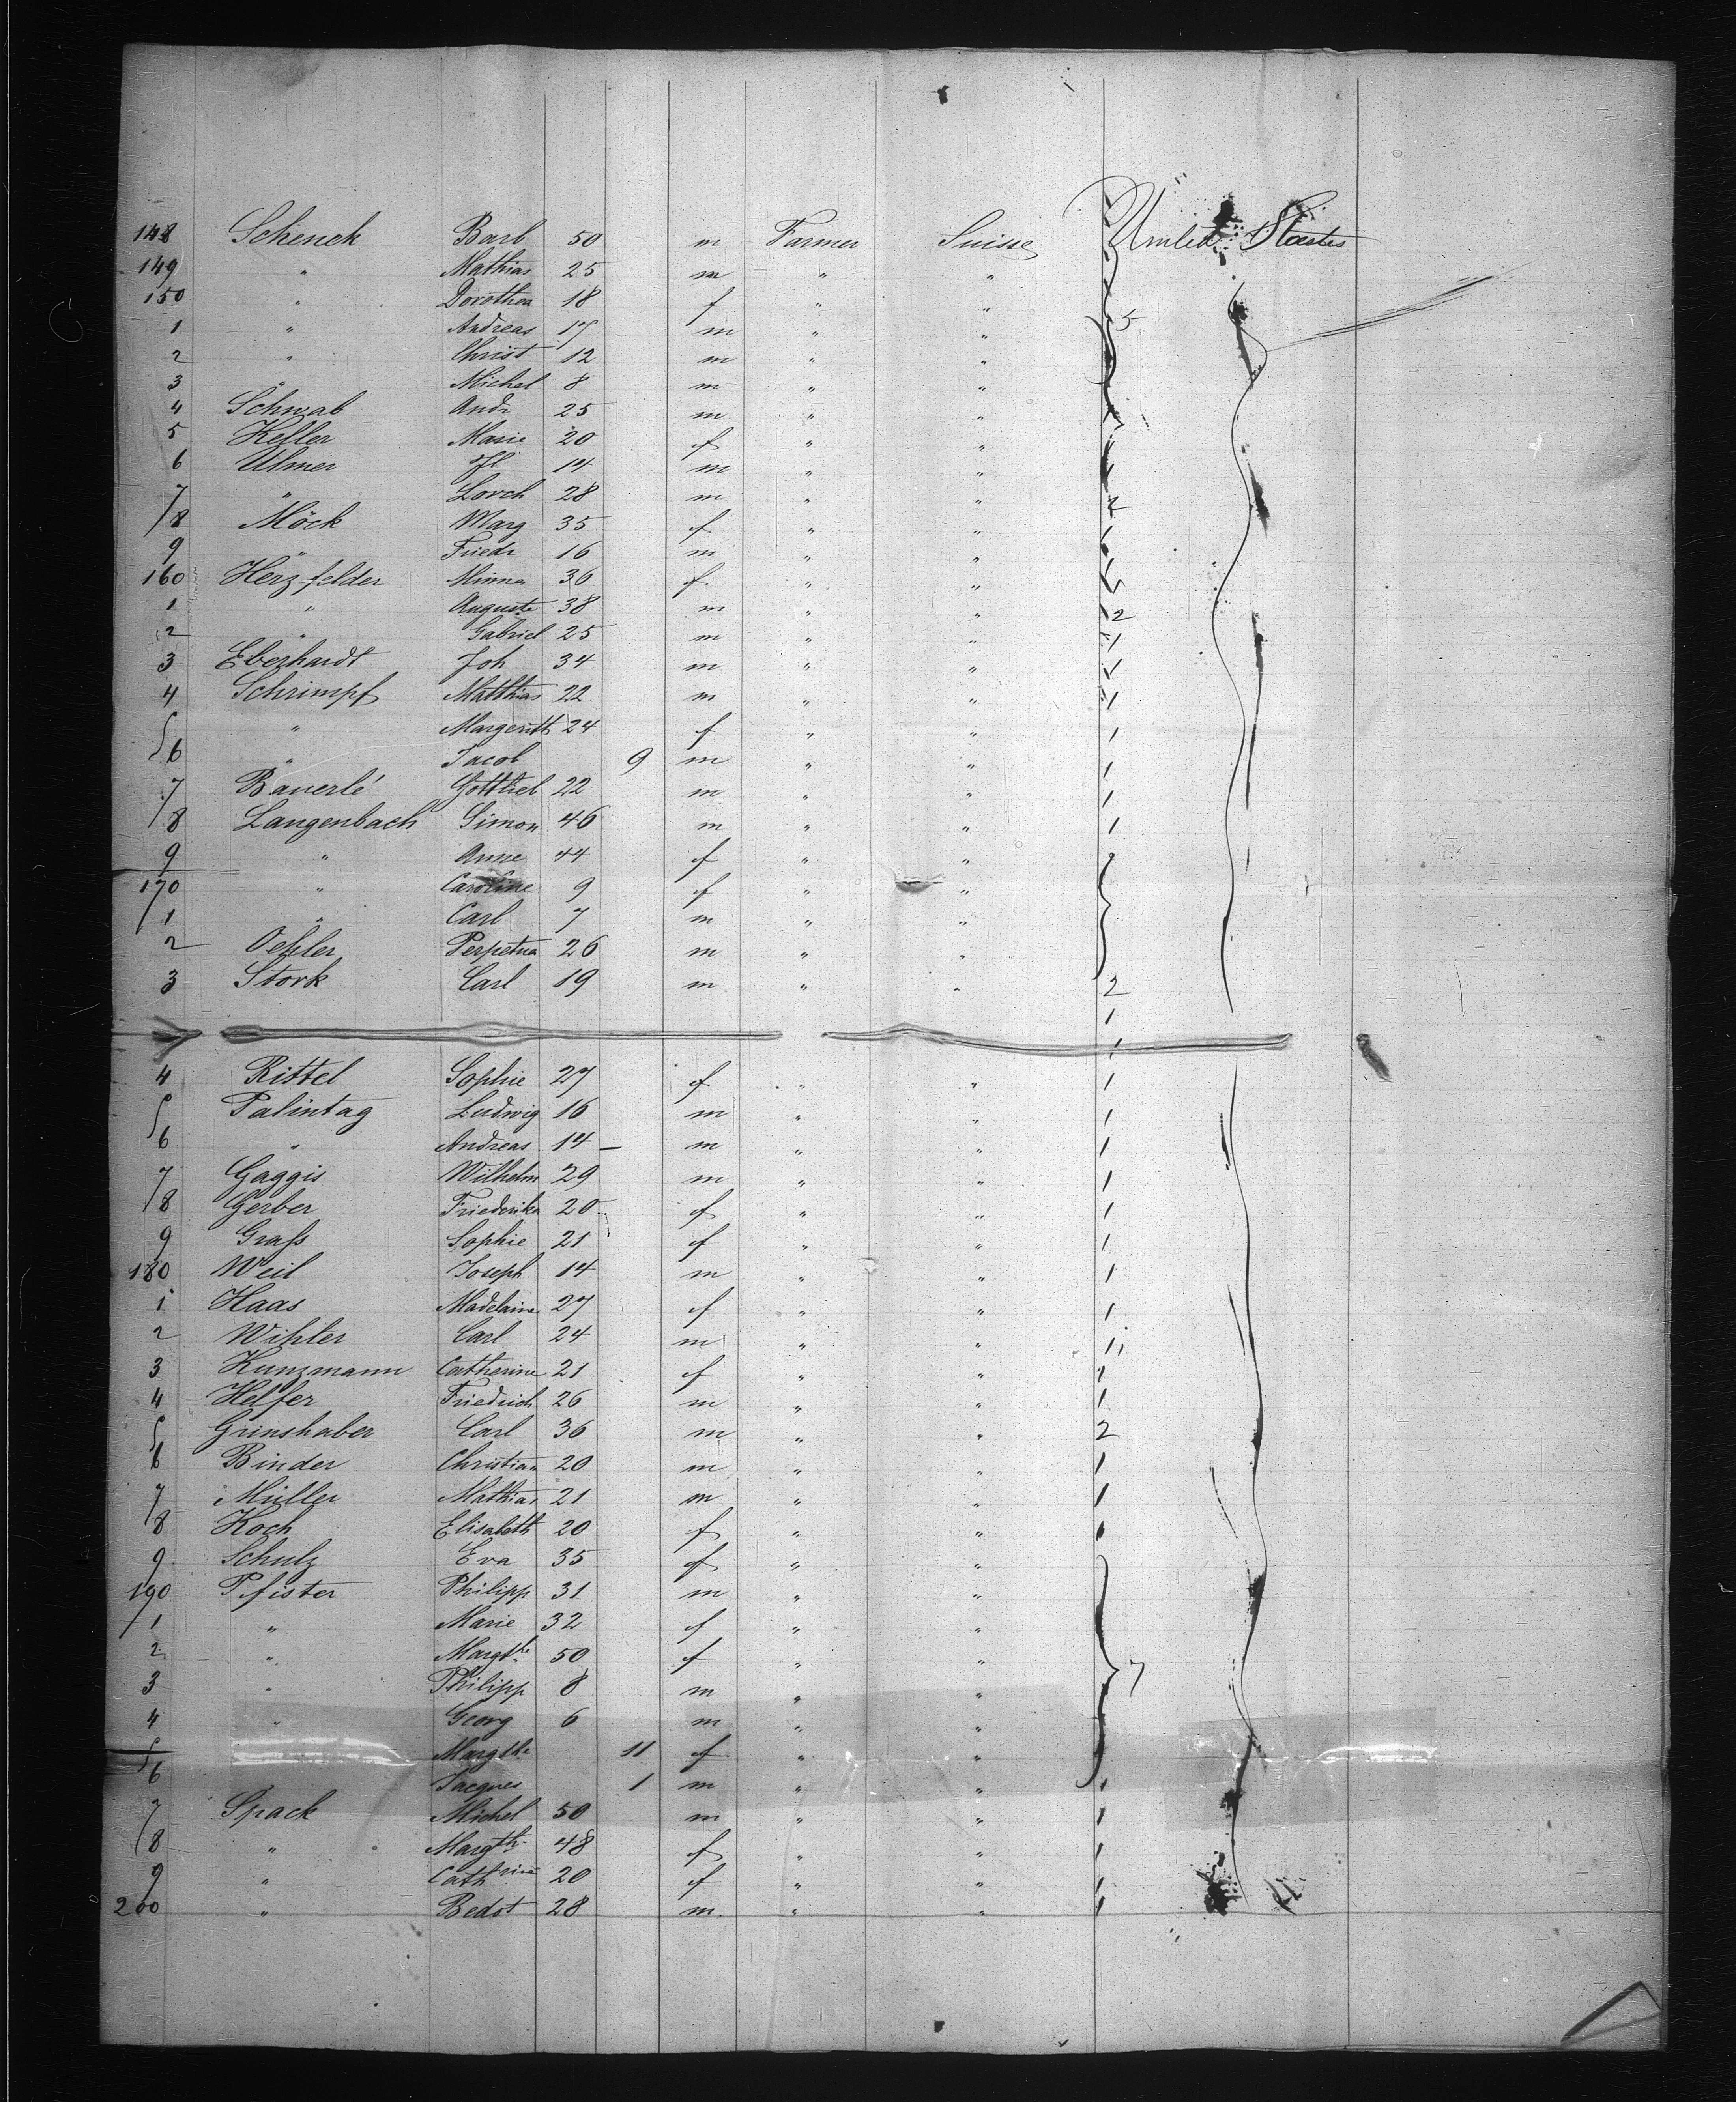 148 Schenck Barb 50 m Farmer Suisse United States
149 " Mathias 25 m " "
150 " Dorothea 18 f " "
1 " Andreas 17 m " " 5
2 " Christ 12 m " "
3 " Michel 8 m " "
4 Schwab Andr 25 m " "
5 Keller Marie 20 f " "
6 Ulmer Jl 14 m " "
7 " Lorch 28 m " " 2
8 Möck Marg 35 f " " 1
9 " Friedr 16 m " "
160 Herzfelder Minna 36 f " "
1 " Auguste 38 m " " 2
2 " Gabriel 25 m " " 1
3 Eberhardt Joh 34 m " " 1
4 Schrimpf Matthias 22 m " " 1
5 " Margerith 24 f " " 1
6 " Jacob 9 m " " 1
7 Bauerlé Gottlieb 22 m " " 1
8 Langenbach Simon 46 m " " 1
9 " Anne 44 f " "
170 " Caroline 9 f " "
1 " Carl 7 m " "
2 Oehler Perpetua 26 m " "
3 Stork Carl 19 m " " 2
1
1
4 Rittel Sophie 27 f " " 1
5 Palintag Ludwig 16 m " " 1
6 " Andreas 14 m " " 1
7 Gaggis Wilhelm 29 m " " 1
8 Gerber Friederika 20 f " " 1
9 Graß Sophie 21 f " " 1
180 Weil Joseph 14 m " " 1
1 Haas Madelaine 27 f " " 1
2 Wihler Carl 24 m " " 1
3 Kunzmann Catherine 21 f " " 1
4 Helfer Friedrich 26 m " " 1
5 Grinshaber Carl 36 m " " 2
6 Binder Christian 20 m " " 1
7 Müller Mathias 21 m " " 1
8 Koch Elisabeth 20 f " " 1
9 Schulz Eva 35 f " "
190 Pfister Philipp 31 m " "
1 " Marie 32 f " "
2 " Margthe 50 f " "
3 " Philipp 8 m " " 7
4 " Georg 6 m " "
5 " Margthe 11 f " "
6 " Jacques 1 m " " 1
7 Spack Michel 50 m " " 1
8 " Margth 48 f " " 1
9 " Cathrine 20 f " " 1
200 " Bedot 28 m " " 1